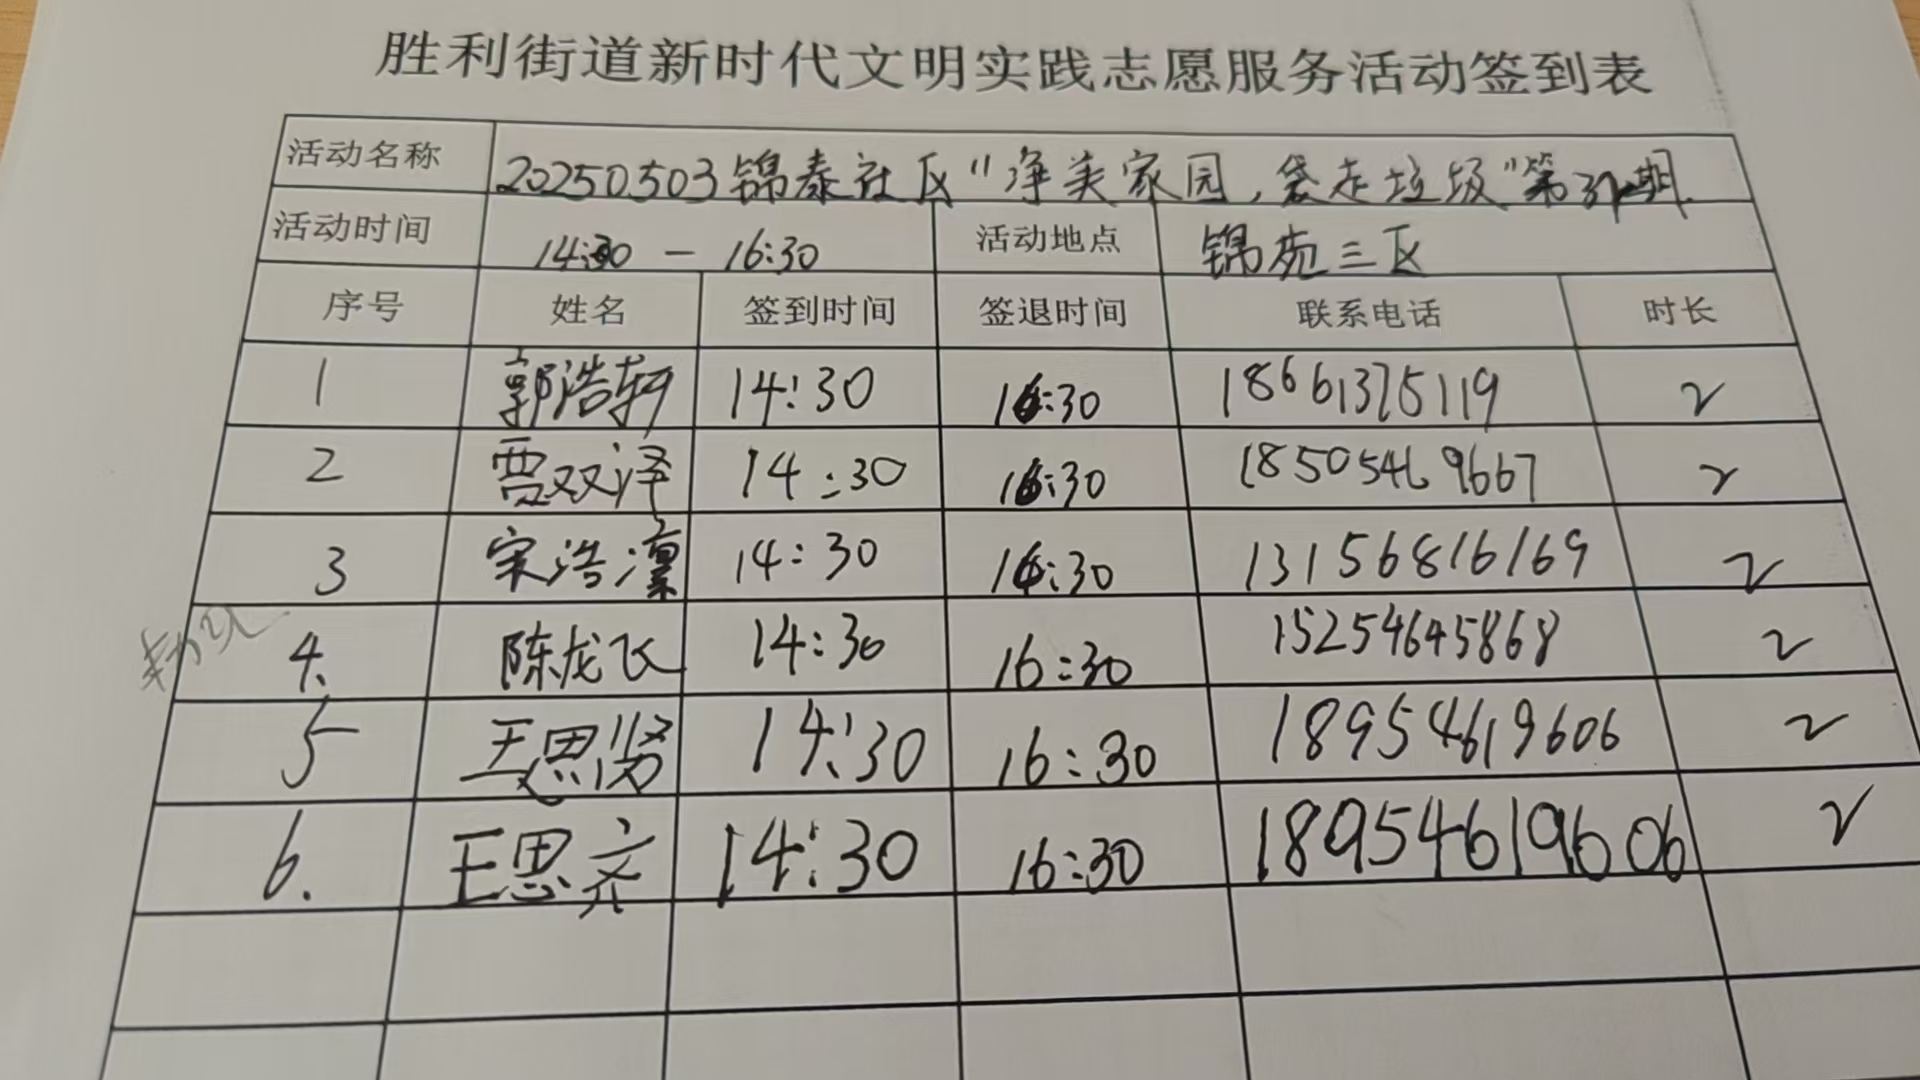 胜利街道新时代文明实践志愿服务活动签到表
活动名称 20250503锦泰社区“净美家园,袋走垃圾”第31期
活动时间 14:30 - 16:30 活动地点 锦苑三区
序号 姓名 签到时间 签退时间 联系电话 时长
1 郭浩轩 14:30 16:30 18661375119 2
2 贾双泽 14:30 16:30 18505469667 2
3 宋浩凛 14:30 16:30 13156816169 2
4. 陈龙飞 14:30 16:30 15254645868 2
5 王思贤 14:30 16:30 18954619606 2
6. 王思齐 14:30 16:30 18954619606 2